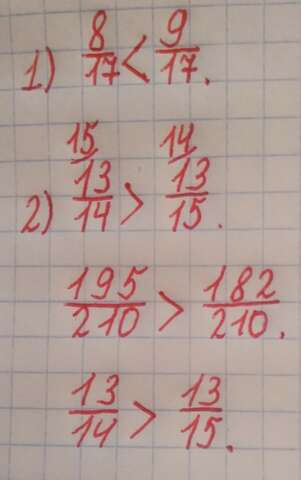 1) 8/17 < 9/17.
15/ 14/
2) 13/14 > 13/15.
195/210 > 182/210.
13/14 > 13/15.